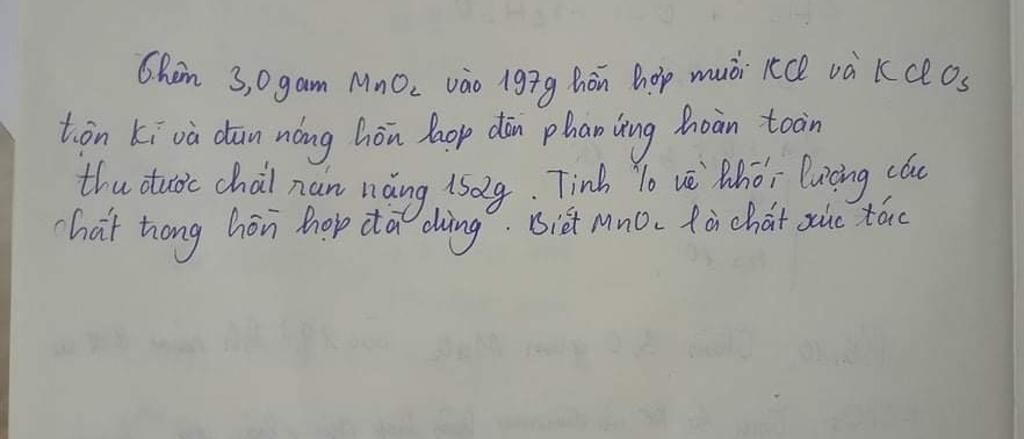 Thêm 3,0gam MnO₂ vào 197g hỗn hợp muối KCl và KClO₃
trộn kĩ và đun nóng hỗn hợp đến phản ứng hoàn toàn
thu được chất rắn nặng 152g. Tính % về khối lượng các
chất trong hỗn hợp đã dùng. Biết MnO₂ là chất xúc tác